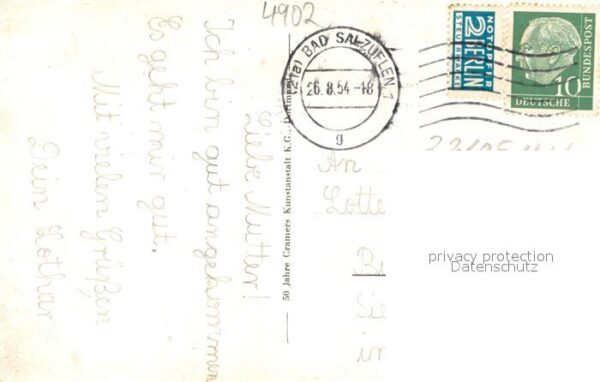 4902
(21a) BAD SALZUFLEN 1
26.8.54-18
g
NOTOPFER
2 BERLIN
STEUERMARKE
DEUTSCHE
BUNDESPOST
10
Liebe Mutter!
Ich bin gut angekommen
Es geht mir gut.
Mit vielen Grüßen
Dein Lothar
50 Jahre Cramers Kunstanstalt K.G., Dortmund
An
Lotte
Sie
in
privacy protection
Datenschutz